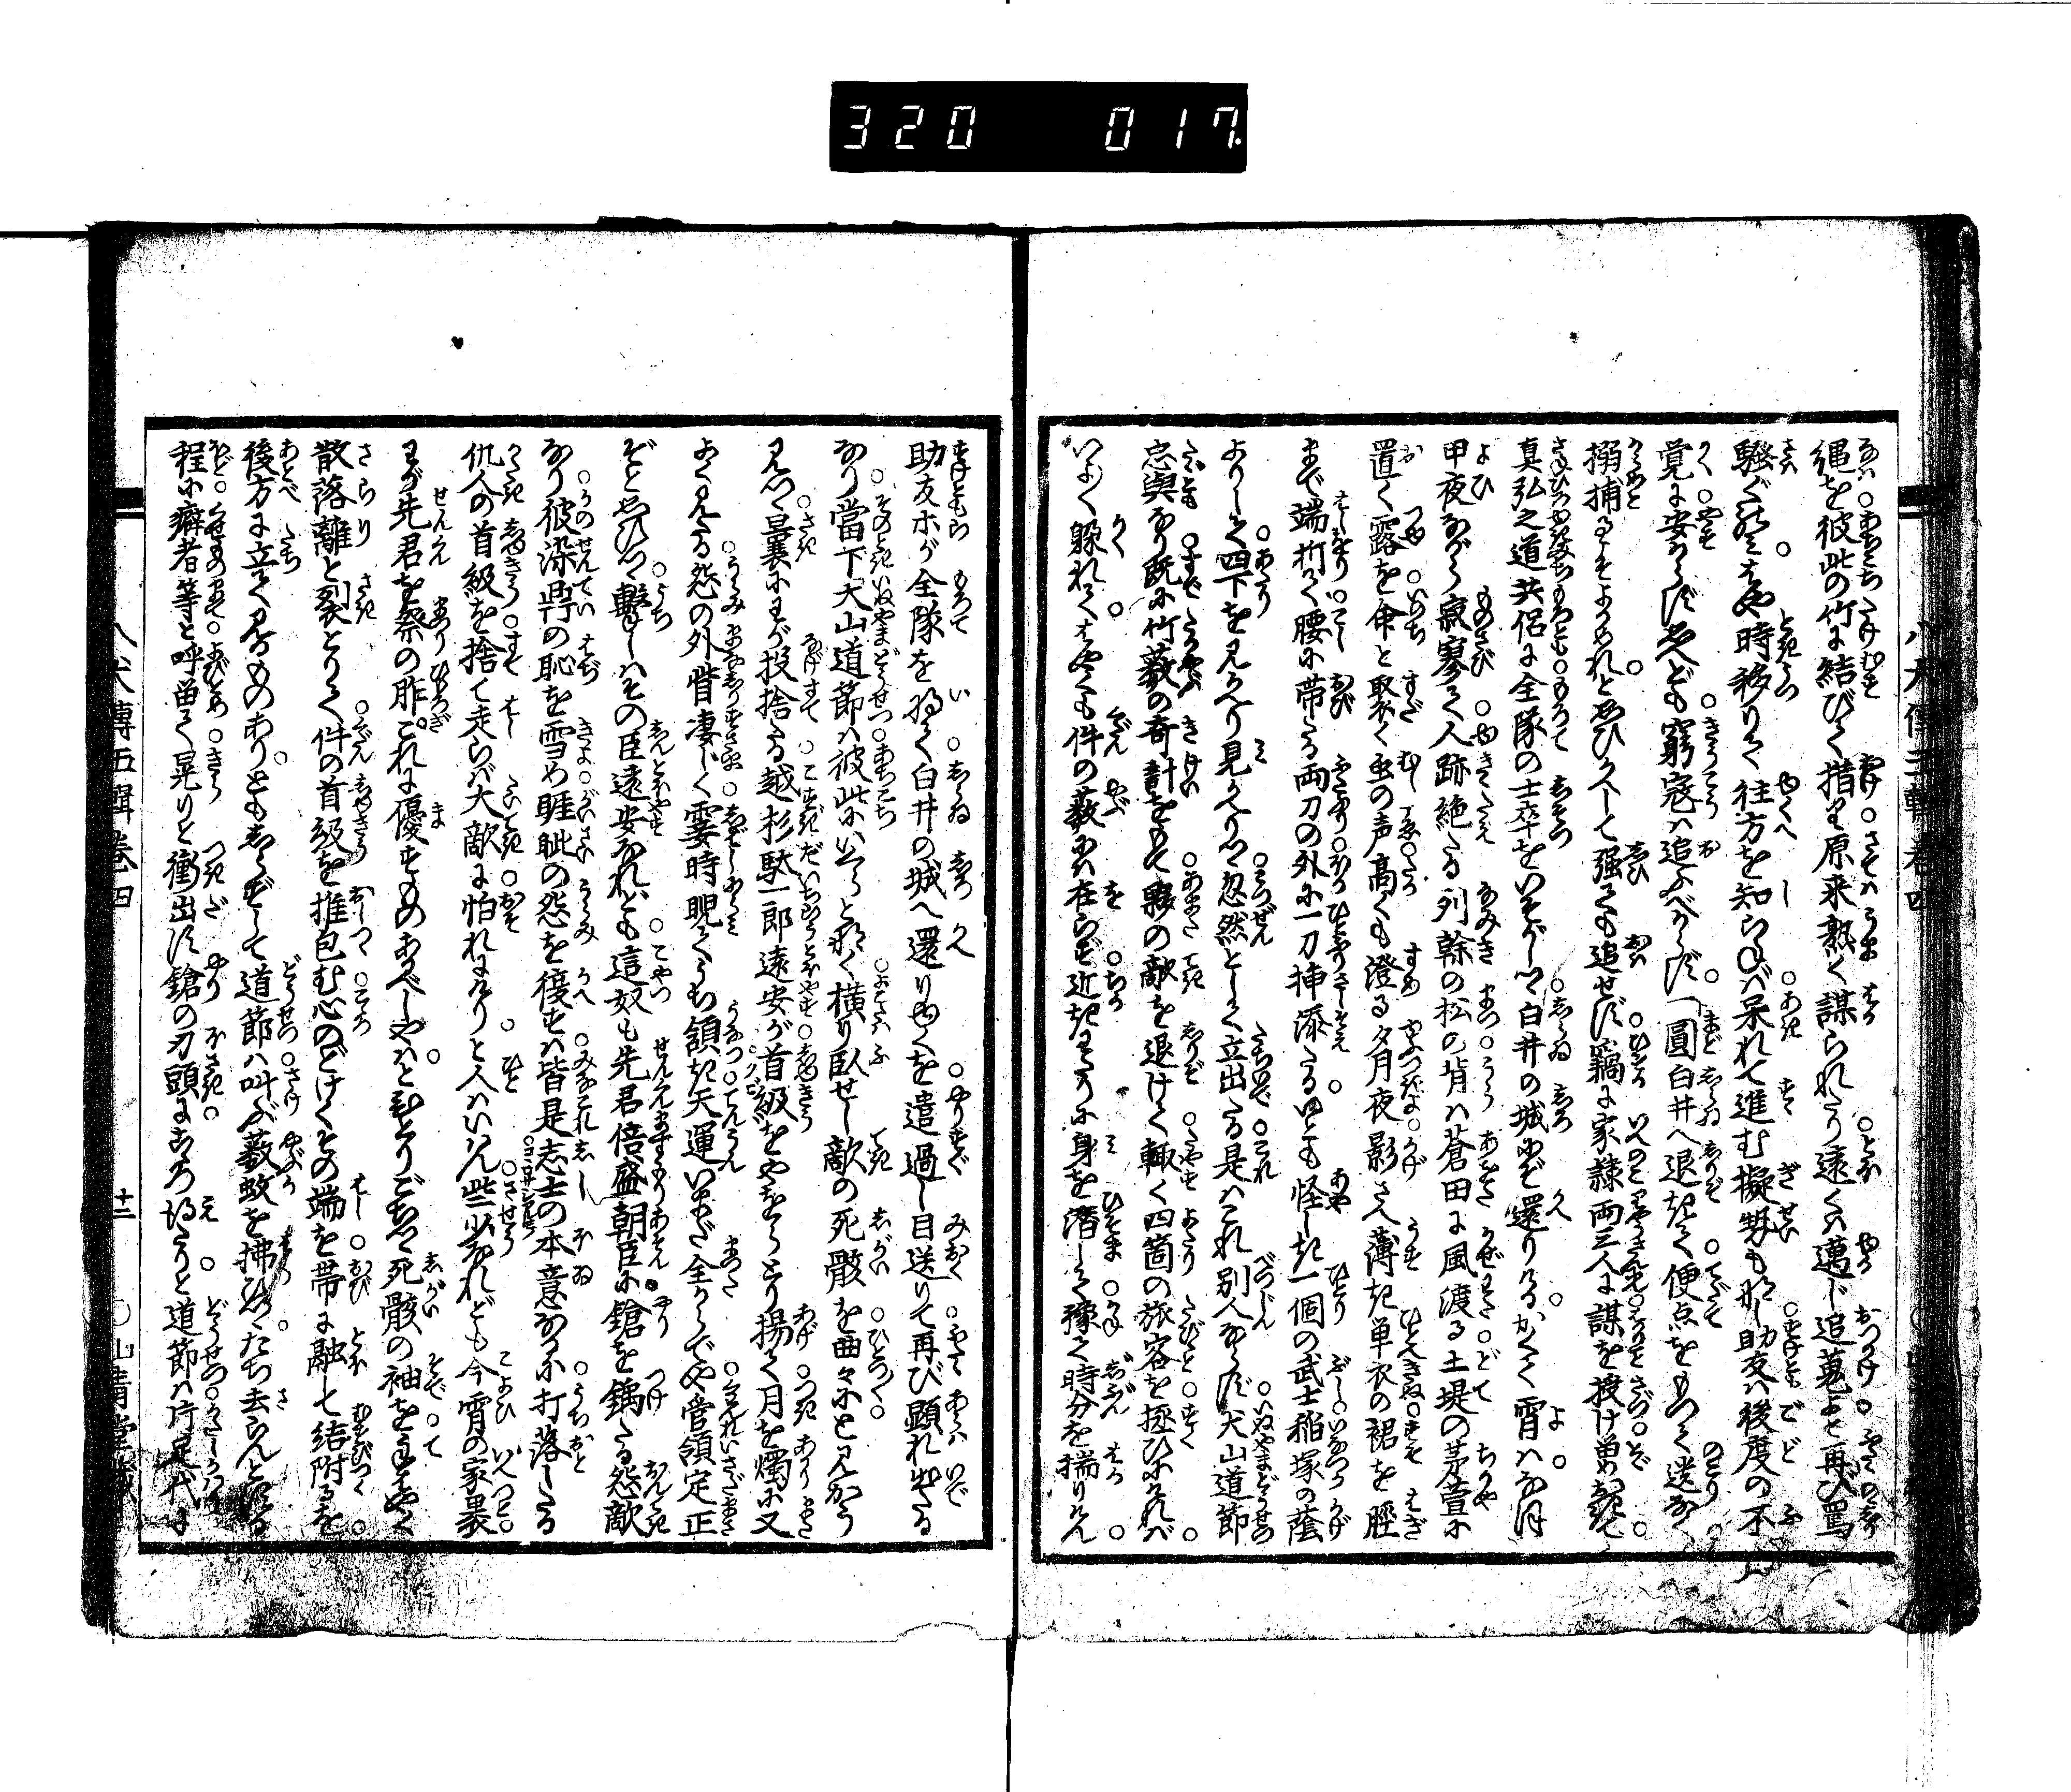 320 017
縄を彼此の竹に結びて措り。原来熟く謀られたり。遠くは邁じ追蒐よと再び罵
騒ぐのみ。はや時移りて往方を知らねば呆れて進む擬勢もなし。助友は後度の不
覚に安からず思へども窮寇は追ふべからず。圓白井へ退きて便点をもつて迯なく
搦捕るこそよかめれと思ひかへしつ強ても追せず。竊に家隷両三人に謀を授け曽め残して
真弘之道共侶に全隊の士卒をいそがしつゝ白井の城へぞ還りける。かくて宵はなほ
甲夜ながら寂寥て人跡絶たる列幹の松の背は蒼田に風渡る土堤の茅萱に
置く露を命と聚く虫の声高くも澄る夕月夜影さへ薄き単衣の裾を脛
まで端折て腰に帯たる両刀の外に一刀挿添たるいとも怪しき一個の武士稲塚の蔭
よりして四下を見かへり見かへりつゝ忽然として立出たる是はこれ別人ならず犬山道節
忠與なり既に竹薮の奇計をもて夥の敵を退けて輙く四箇の旅客を拯ひにければ
いよく躱れてはやくも件の薮には在らず近きわたりに身を潜して豫て時分を揣りけん
助友ホが全隊を将て白井の城へ還りゆくを遣過し目送りて再び顕れ出たる
なり當下犬山道節は彼此にいくらとなく横り臥せし敵の死骸を曲々にと見かう
見つゝ曩にわが投捨たる越杉駄一郎遠安が首級をやをらとり揚て月を燭に又
よく見たる怨の外眥凄しく霎時睨てうち領き天運いまだ全からでや管領定正
ぞと思ひつゝ撃しはその臣遠安なれども這奴も先君倍盛朝臣に鎗を鍚たる怨敵
なり彼染専の恥を雪め睚眦の怨を復すは皆是志士の本意なるに打落したる
仇人の首級を捨て走らば大敵に怕れにけりと人はいはん些少なれども今宵の家裹
わが先君を祭の胙。これに優すものあるべしやはとひとりごちつゝ死骸の袖を手ばやく
散落離と裂とりて件の首級を推包む心のどけくその端を帯に融して結附るを
後方に立て見るものありともしらずして道節は叫ぶ薮蚊を拂ひつゝたち去らんとする
程に癖者等と呼留て晃りと衝出す鎗の刃頭にこゝろ得たりと道節は片足代に
八犬傳五輯巻四 十二 ○山青堂藏